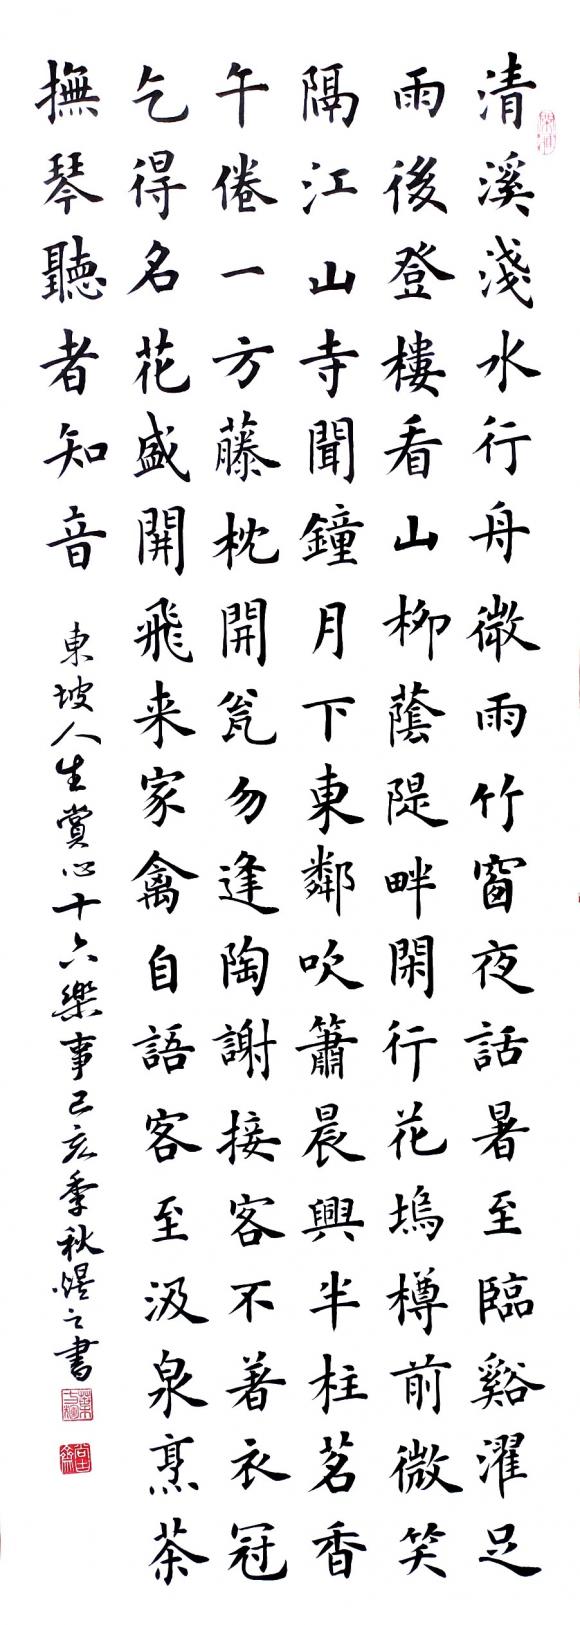 清溪淺水行舟微雨竹窗夜話暑至臨谿濯足
雨後登樓看山柳蔭隄畔閑行花塢樽前微笑
隔江山寺聞鐘月下東鄰吹簫晨興半柱茗香
午倦一方藤枕開瓮勿逢陶謝接客不著衣冠
乞得名花盛開飛来家禽自語客至汲泉烹茶
撫琴聽者知音
東坡人生賞心十六樂事己亥季秋煜之書